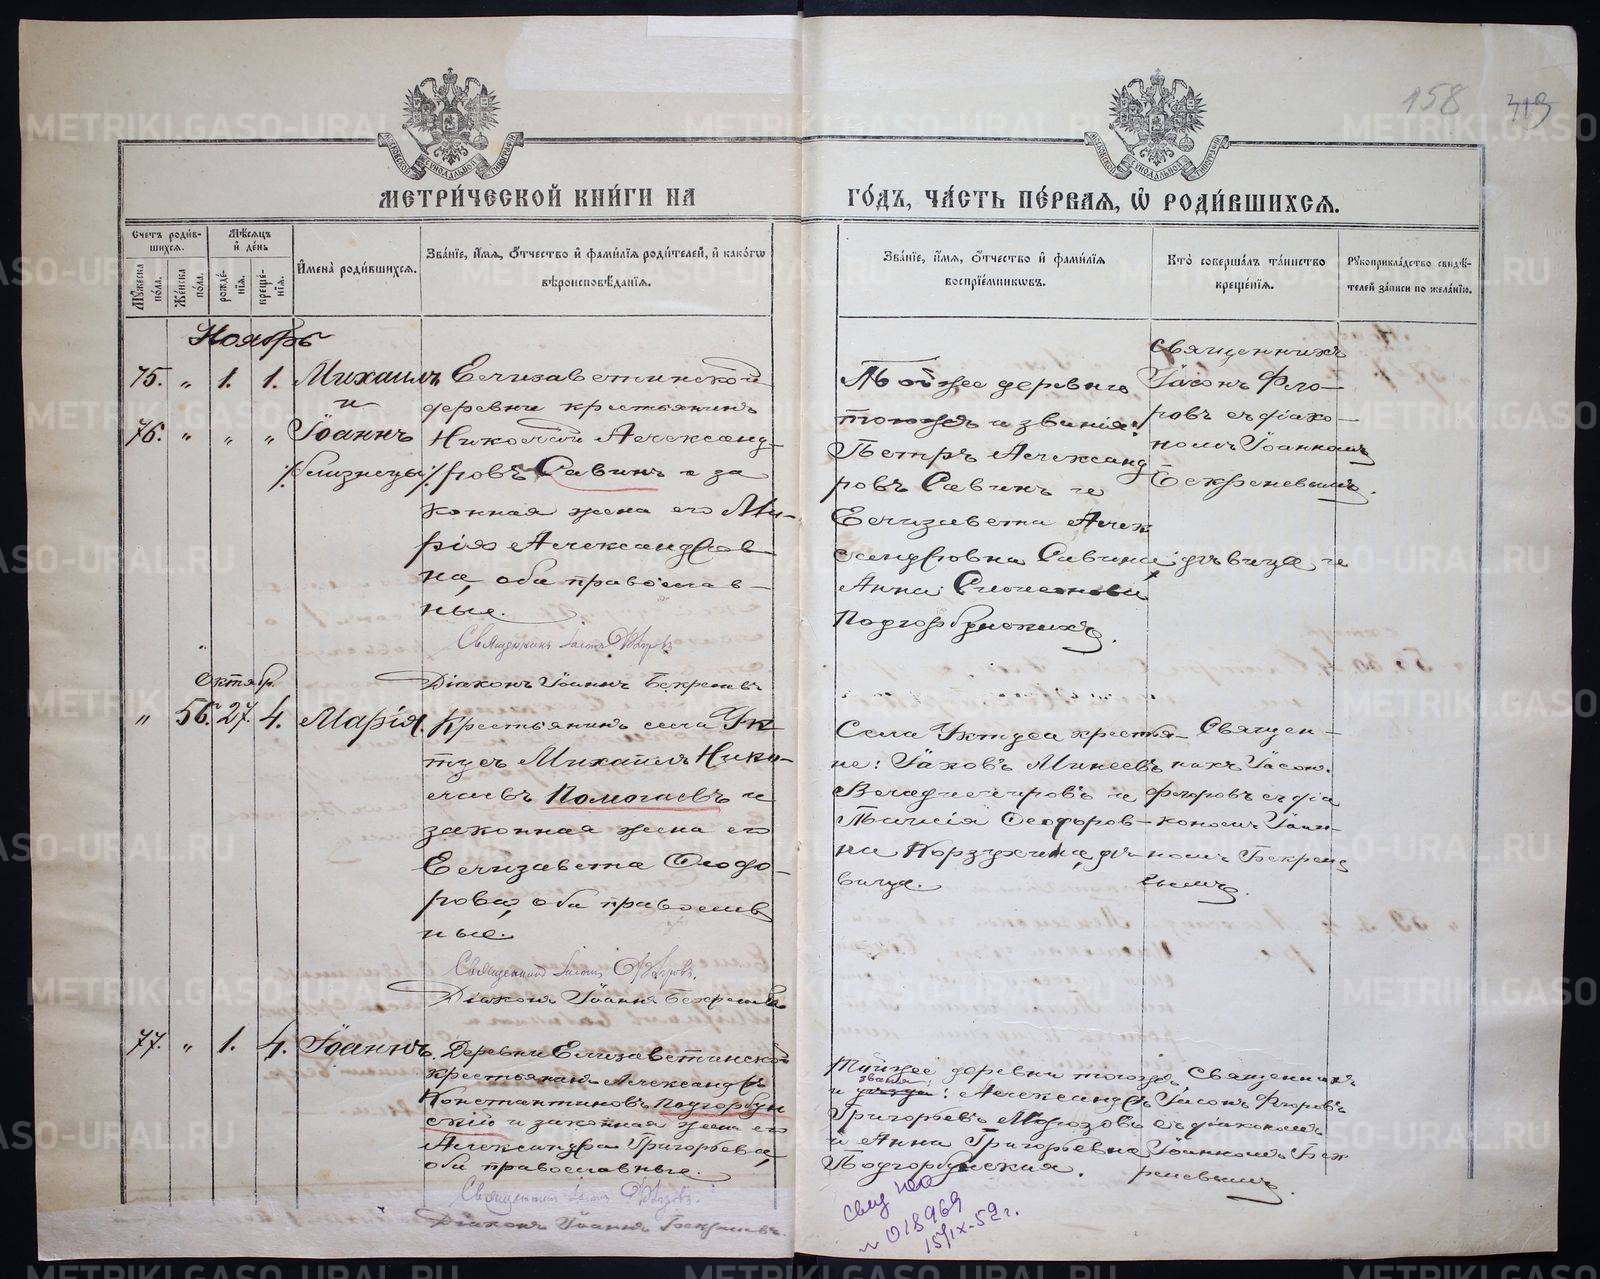 158
313
МЕТРИ́ЧЕСКОЙ КНИ́ГИ НА
ГО́ДЪ, ЧА́СТЬ ПЕ́РВАЯ, Ѡ҆ РОДИ́ВШИХСЯ.
Счетъ роди́вшихся.
Мꙋ́жеска по́ла.
Же́нска по́ла.
Мѣ́сяцъ и҆ де́нь
рожде́нїя.
креще́нїя.
И҆мена̀ роди́вшихся.
Зва́нїе, и҆́мя, ѻ҆́тчество и҆ фами́лїя роди́телей, и҆ како́гѡ
вѣроисповѣ́данїя.
Зва́нїе, и҆́мя, ѻ҆́тчество и҆ фами́лїя
воспрїе́мникѡвъ.
Кто̀ соверша́лъ та́инство
креще́нїя.
Рꙋкоприкла́дство свидѣ́телей за́писи по жела́нїю.
Ноябрь
75. „ 1. 1. Михаилъ
и
76. „ „ „ Іоаннъ
/:близнецы:/
Елизаветинской
деревни крестьянинъ
Николай Александ-
ровъ Савинъ и за
конная жена его Ма-
рія Александров-
на, оба православ-
ные.
Священникъ Іасонъ Флоровъ
Діаконъ Іоаннъ Бекреневъ
Той же деревни
того же и званія:
Петръ Александ
ровъ Савинъ и
Елизавета Алек
сандровна Савина, дѣвица и
Анна Симеонова
Подгорбунскихъ.
Священникъ
Іасонъ Фло-
ровъ съ діако-
номъ Іоанномъ
Бекреневымъ.
Октябрь
„ 56. 27. 4. Марія.
Крестьянинъ села Ук
тусъ Михаилъ Нико-
лаевъ Помогаевъ и
законная жена его
Елизавета Ѳеодо-
рова, оба православ
ные.
Священникъ Іасонъ Флоровъ.
Діаконъ Іоаннъ Бекреневъ
Села Уктуса крестья-
не: Іаковъ Минеевъ
Владиміровъ и
Таисія Ѳеодоров-
на Корзухина, дѣ-
вица.
Священ-
никъ Іасонъ
Флоровъ съ діа
кономъ Іоан-
номъ Бекрене
вымъ.
77. „ 1. 4. Іоаннъ.
Деревни Елизаветинской
крестьянинъ Александръ
Константиновъ Подгорбун
скій и законная жена его
Александра Григорьева,
оба православные.
Священникъ Іасонъ Флоровъ.
Діаконъ Іоаннъ Бекреневъ.
Той же деревни того же
званія
и : Александръ
Григорьевъ Морозовъ
и Анна Григорьевна
Подгорбунская.
Священникъ
Іасонъ Флоровъ
съ діакономъ
Іоанномъ Бек
реневымъ.
018969
15/IX-52 г.